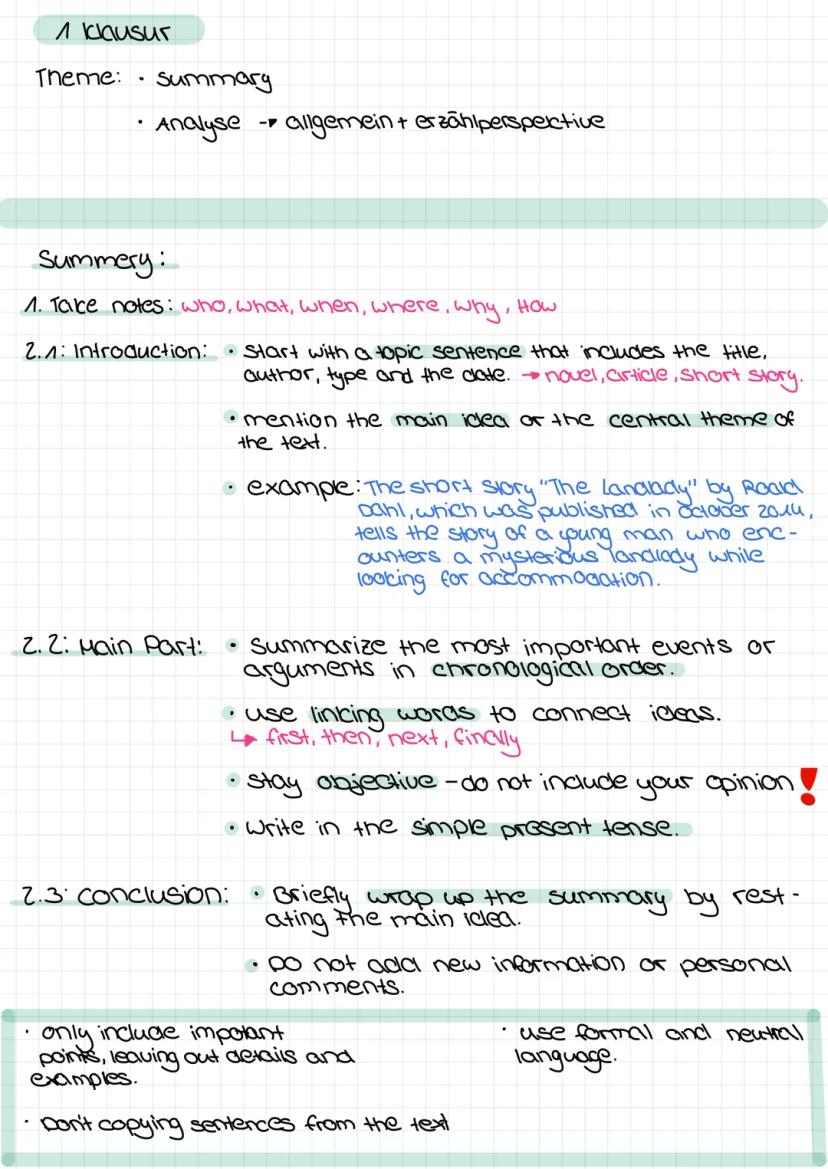 1 Klausur
Theme: · summary
· Analyse → allgemein + erzählperspektive
Summery:
1. Take notes: who, what, when, where, why, How
2.1: Introduction: · Start with a topic sentence that includes the title,
author, type and the date. → novel, article, short story.
· mention the main idea or the central theme of
the text.
· example: The short story "The Landlady" by Roald
Dahl, which was published in October 2014,
tells the story of a young man who enc-
ounters a mysterious landlady while
looking for accommodation.
2.2: Main Part: · Summarize the most important events or
arguments in chronological order.
· use linking words to connect ideas.
↳ first, then, next, finally
· Stay objective - do not include your opinion!
· Write in the simple present tense.
2.3: Conclusion: · Briefly wrap up the summary by rest-
ating the main idea.
· Do not add new information or personal
comments.
· only include impotant
points, leaving out details and
examples.
· Don't copying sentences from the text
· use formal and neutral
language.